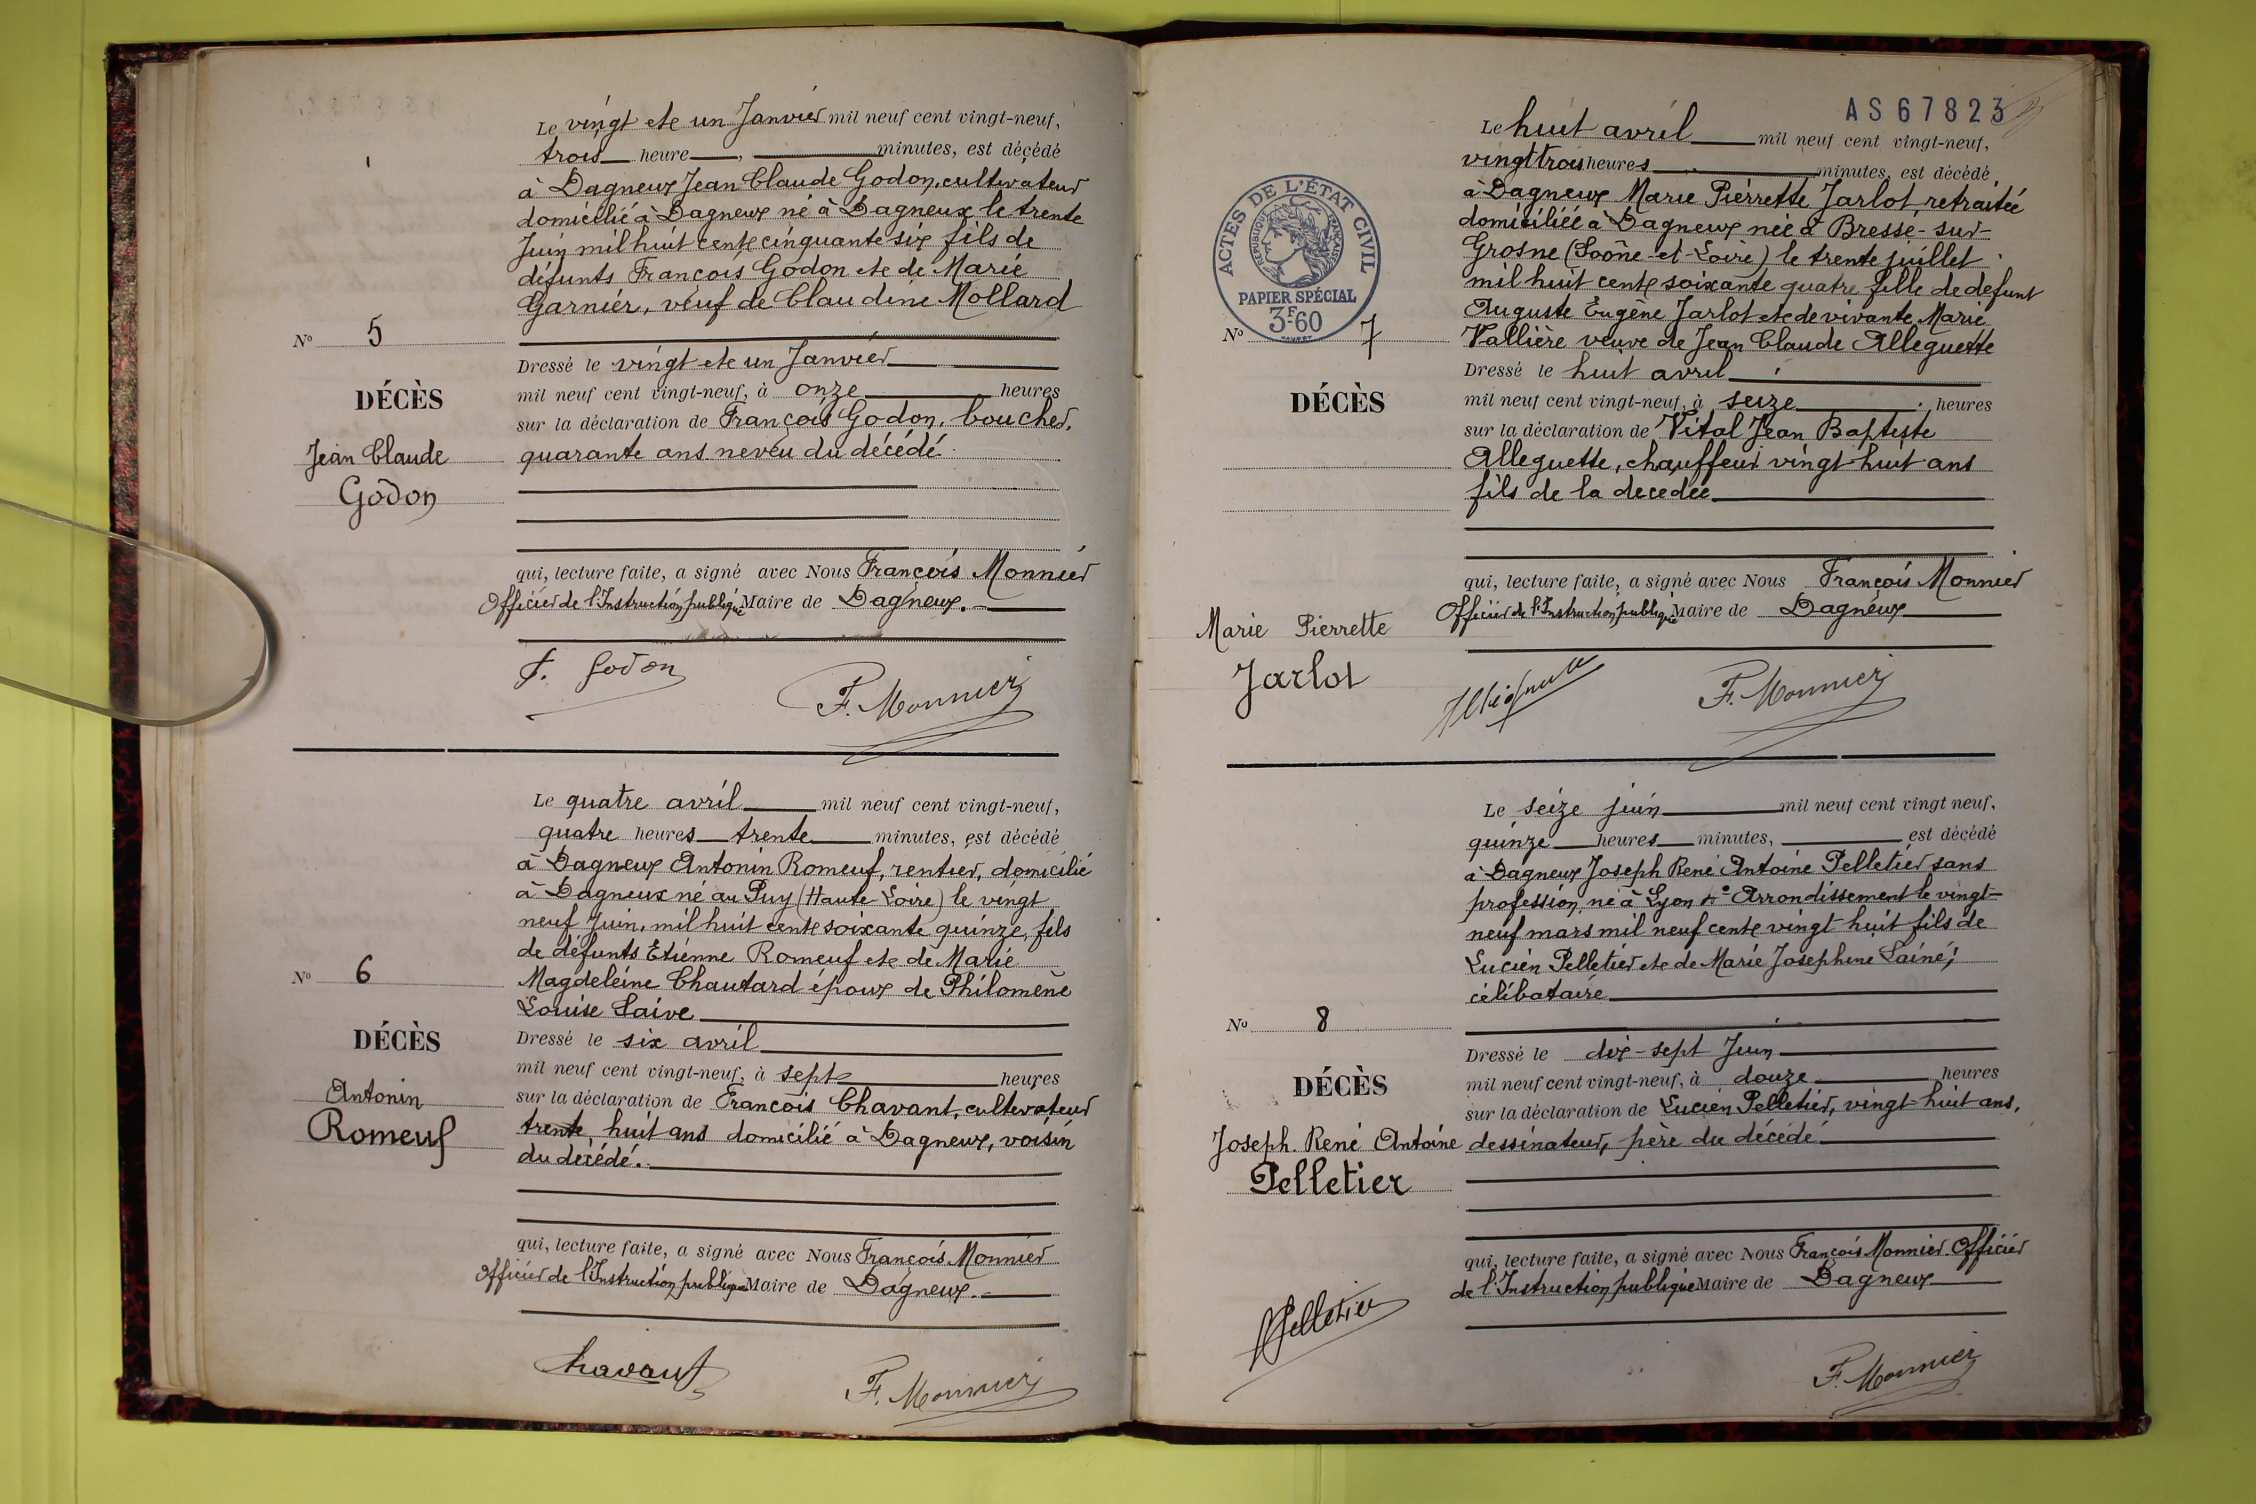 Le vingt et un Janvier mil neuf cent vingt-neuf,
trois heure , minutes, est décédé
à Dagneux Jean Claude Godon, cultivateur
domicilié à Dagneux né à Dagneux le trente
Juin mil huit cent cinquante six fils de
défunts François Godon et de Marie
Garnier, veuf de Claudine Mollard
No 5
Dressé le vingt et un Janvier
mil neuf cent vingt-neuf, à onze heures
DÉCÈS
sur la déclaration de François Godon, boucher,
Jean Claude
quarante ans neveu du décédé
Godon
qui, lecture faite, a signé avec Nous François Monnier
Officier de l'Instruction publique Maire de Dagneux.
F. Godon
F. Monnier
Le quatre avril mil neuf cent vingt-neuf,
quatre heures trente minutes, est décédé
à Dagneux Antonin Romeuf, rentier, domicilié
à Dagneux né au Puy (Haute-Loire) le vingt
neuf Juin, mil huit cent soixante quinze, fils
de défunts Etienne Romeuf et de Marie
No 6
Magdeleine Chautard époux de Philomène
Louise Saive
DÉCÈS
Dressé le six avril
mil neuf cent vingt-neuf, à sept heures
Antonin
sur la déclaration de François Chavant, cultivateur
Romeuf
trente huit ans domicilié à Dagneux, voisin
du décédé.
qui, lecture faite, a signé avec Nous François Monnier
Officier de l'Instruction publique Maire de Dagneux.
Chavant
F. Monnier
AS67823
Le huit avril mil neuf cent vingt-neuf,
vingt trois heures minutes, est décédé
à Dagneux Marie Pierrette Jarlot, retraitée
domiciliée à Dagneux née à Bresse-sur-
Grosne (Saône-et-Loire) le trente juillet
mil huit cent soixante quatre fille de defunt
Auguste Eugène Jarlot et de vivante Marie
Vallière veuve de Jean Claude Alleguette
ACTES DE L'ÉTAT CIVIL
REPUBLIQUE FRANÇAISE
PAPIER SPÉCIAL
3F60
No 7
Dressé le huit avril
DÉCÈS
mil neuf cent vingt-neuf, à seize heures
sur la déclaration de Vital Jean Baptiste
Alleguette, chauffeur vingt-huit ans
fils de la décédée
qui, lecture faite, a signé avec Nous François Monnier
Officier de l'Instruction publique Maire de Dagneux
Marie Pierrette
Jarlot
F. Monnier
Le seize juin mil neuf cent vingt neuf,
quinze heures minutes, est décédé
à Dagneux Joseph René Antoine Pelletier sans
profession, né à Lyon Arrondissement le vingt-
neuf mars mil neuf cent vingt-huit fils de
Lucien Pelletier et de Marie Josephine Lainé;
célibataire
No 8
Dressé le dix-sept Juin
DÉCÈS
mil neuf cent vingt-neuf, à douze heures
sur la déclaration de Lucien Pelletier, vingt-huit ans,
Joseph René Antoine
dessinateur, père du décédé
Pelletier
qui, lecture faite, a signé avec Nous François Monnier Officier
de l'Instruction publique Maire de Dagneux
Pelletier
F. Monnier